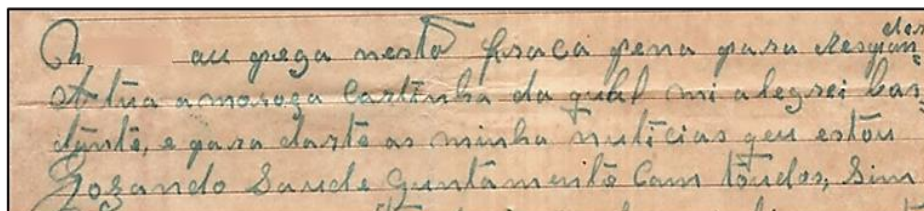 Oh, au pega nesta fraca pena para Respon der
A tua amoroza Cartinha da qual mi alegrei bas
tante, e para darte as minha nuticias qeu estou
Gozando Saude Guntamente Com tôudos, Sim